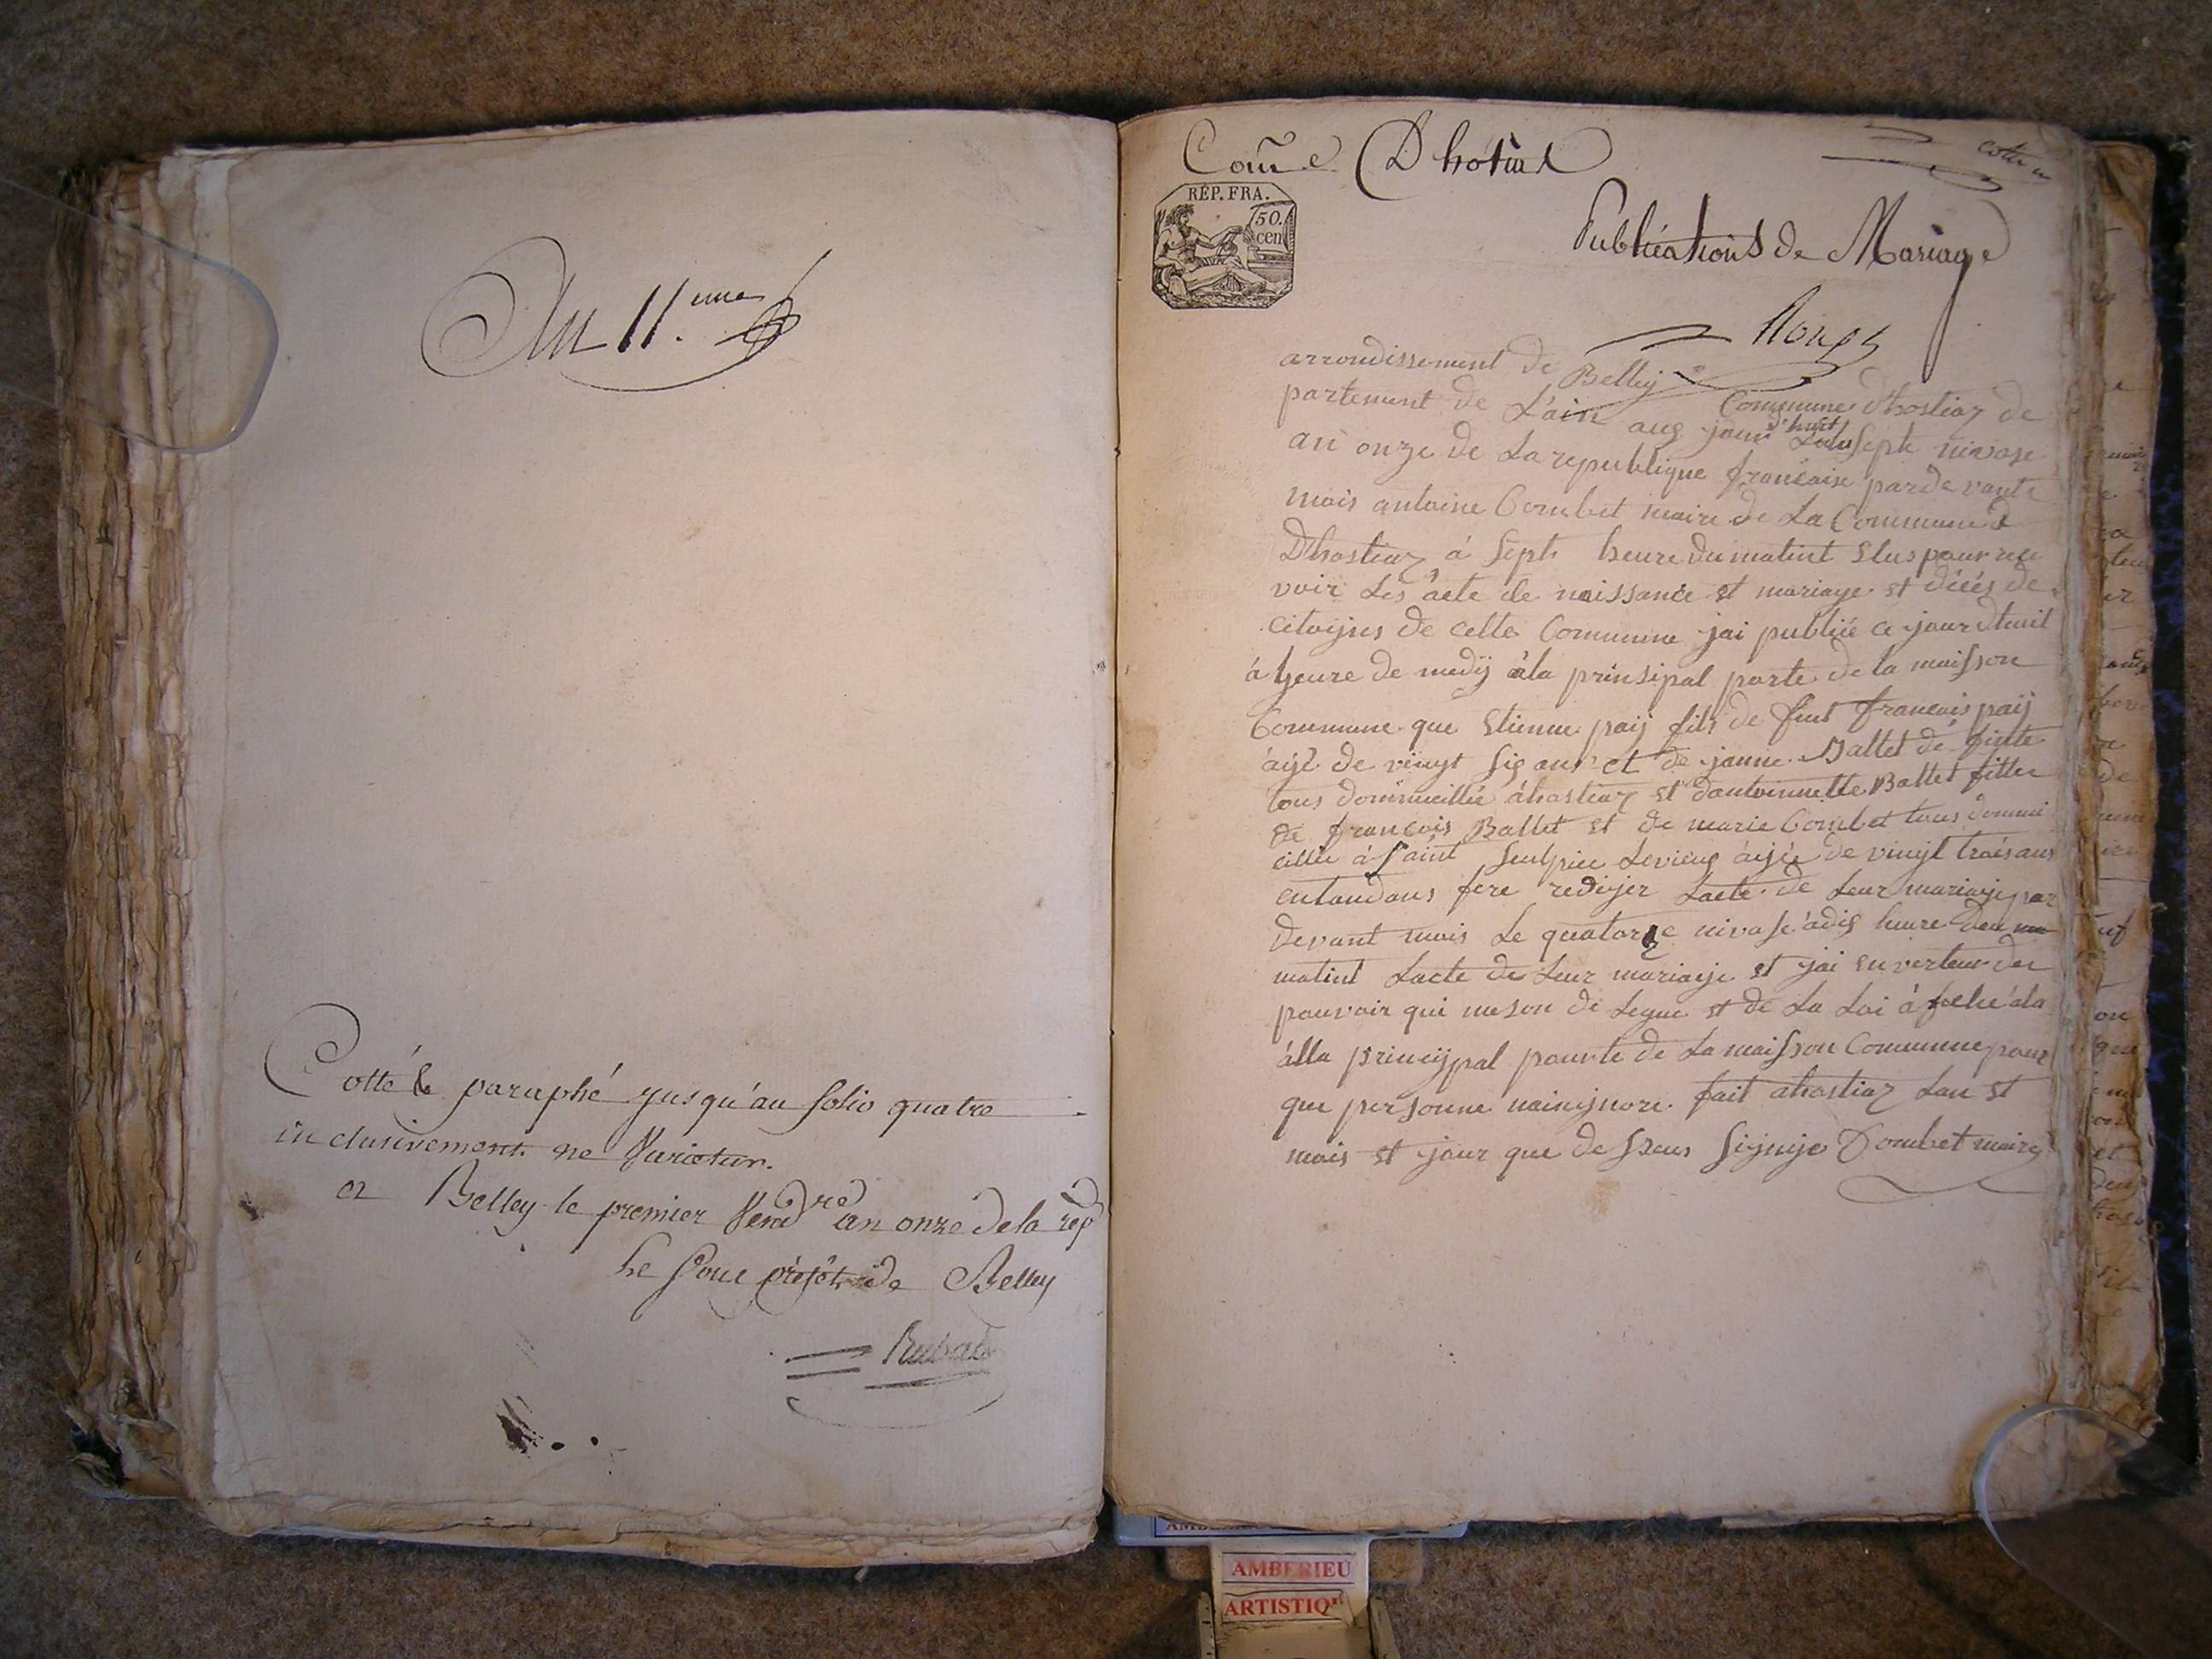 An 11.eme
Cotté & paraphé jusqu'au folio quatre
inclusivement ne Varietur.
a Belley le premier Vendre an onze de la rep
le Sous préfet de Belley
Com̃e D'hotiaz
cotte
RÉP. FRA.
50.
cen
Publications de Mariage
arrondissement de Belley Commune d'hostiaz de
partement de L'ain aug jour d'huit Le Septe nivose
an onze de La republique francaise par de vante
mois antoine Combet maire de La Commune d
Dhostiaz á Septe heure du matint Elus pour rece
voir Les acte de naissance et mariage et décés de
citoijns de cette Commune jai publiée ce jour dhuit
á heure de medÿ ála prinsipal porte de la maisson
Commune que Etienne paÿ fils de feut francois paÿ
áijé de vingt sig ans et de janne Ballet défunte
tous domicillié áhostiaz et dantoinnette Ballet fillie
de francois Ballet et de marie Combet tous domini
cillié á Saint Seulpice Levieug áijée de vingt trois ans
entandans fere redijer Lacte de Leur mariaije par
devant mois Le quatorze nivose ádig heure deu
matint Lacte de Leur mariaije et jai en verteu des
pouvoir qui me son de Legue et de La Loi á fiché ála
álla principal pourte de La maisson Commune pour
que personne nainijnore fait ahostiaz Lan et
mois et jour que de sseus Signije Combet maire
AMBERIEU
ARTISTIQ